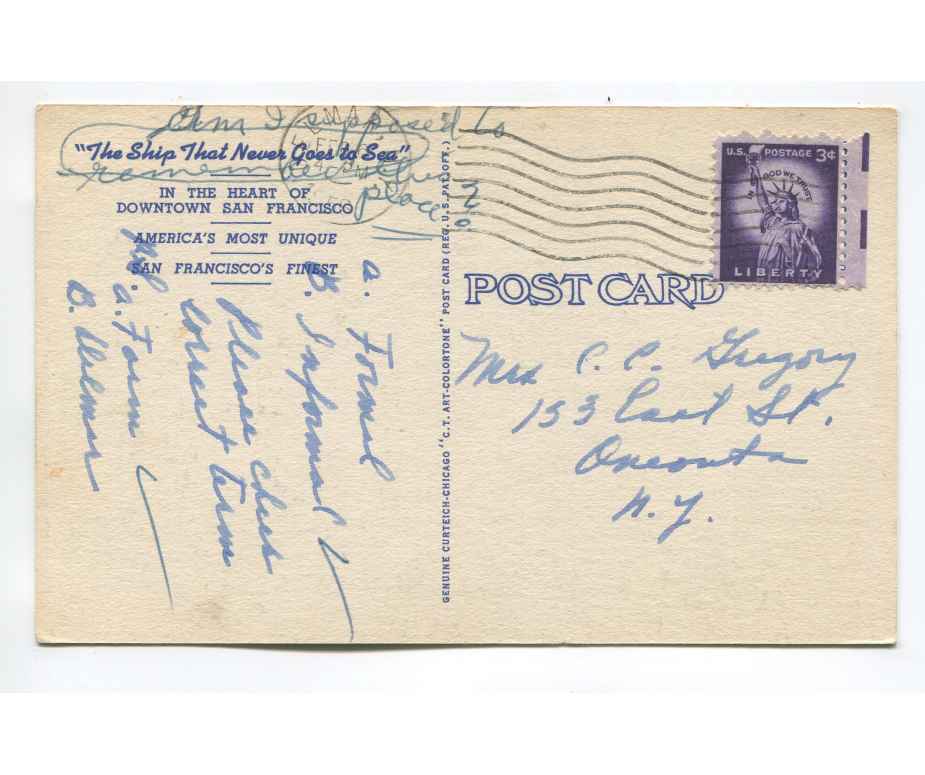 Am I supposed to
"The Ship That Never Goes to Sea"
remember this
place?
IN THE HEART OF
DOWNTOWN SAN FRANCISCO
AMERICA'S MOST UNIQUE
SAN FRANCISCO'S FINEST
a. Formal
B. Informal
Please check
correct term
a. Form
B. Delmar
GENUINE CURTEICH-CHICAGO "C.T. ART-COLORTONE" POST CARD (REG. U.S. PAT. OFF.)
U.S. POSTAGE 3¢
IN GOD WE TRUST
LIBERTY
POST CARD
Mrs C. C. Gregory
153 East St.
Oneonta
N.Y.